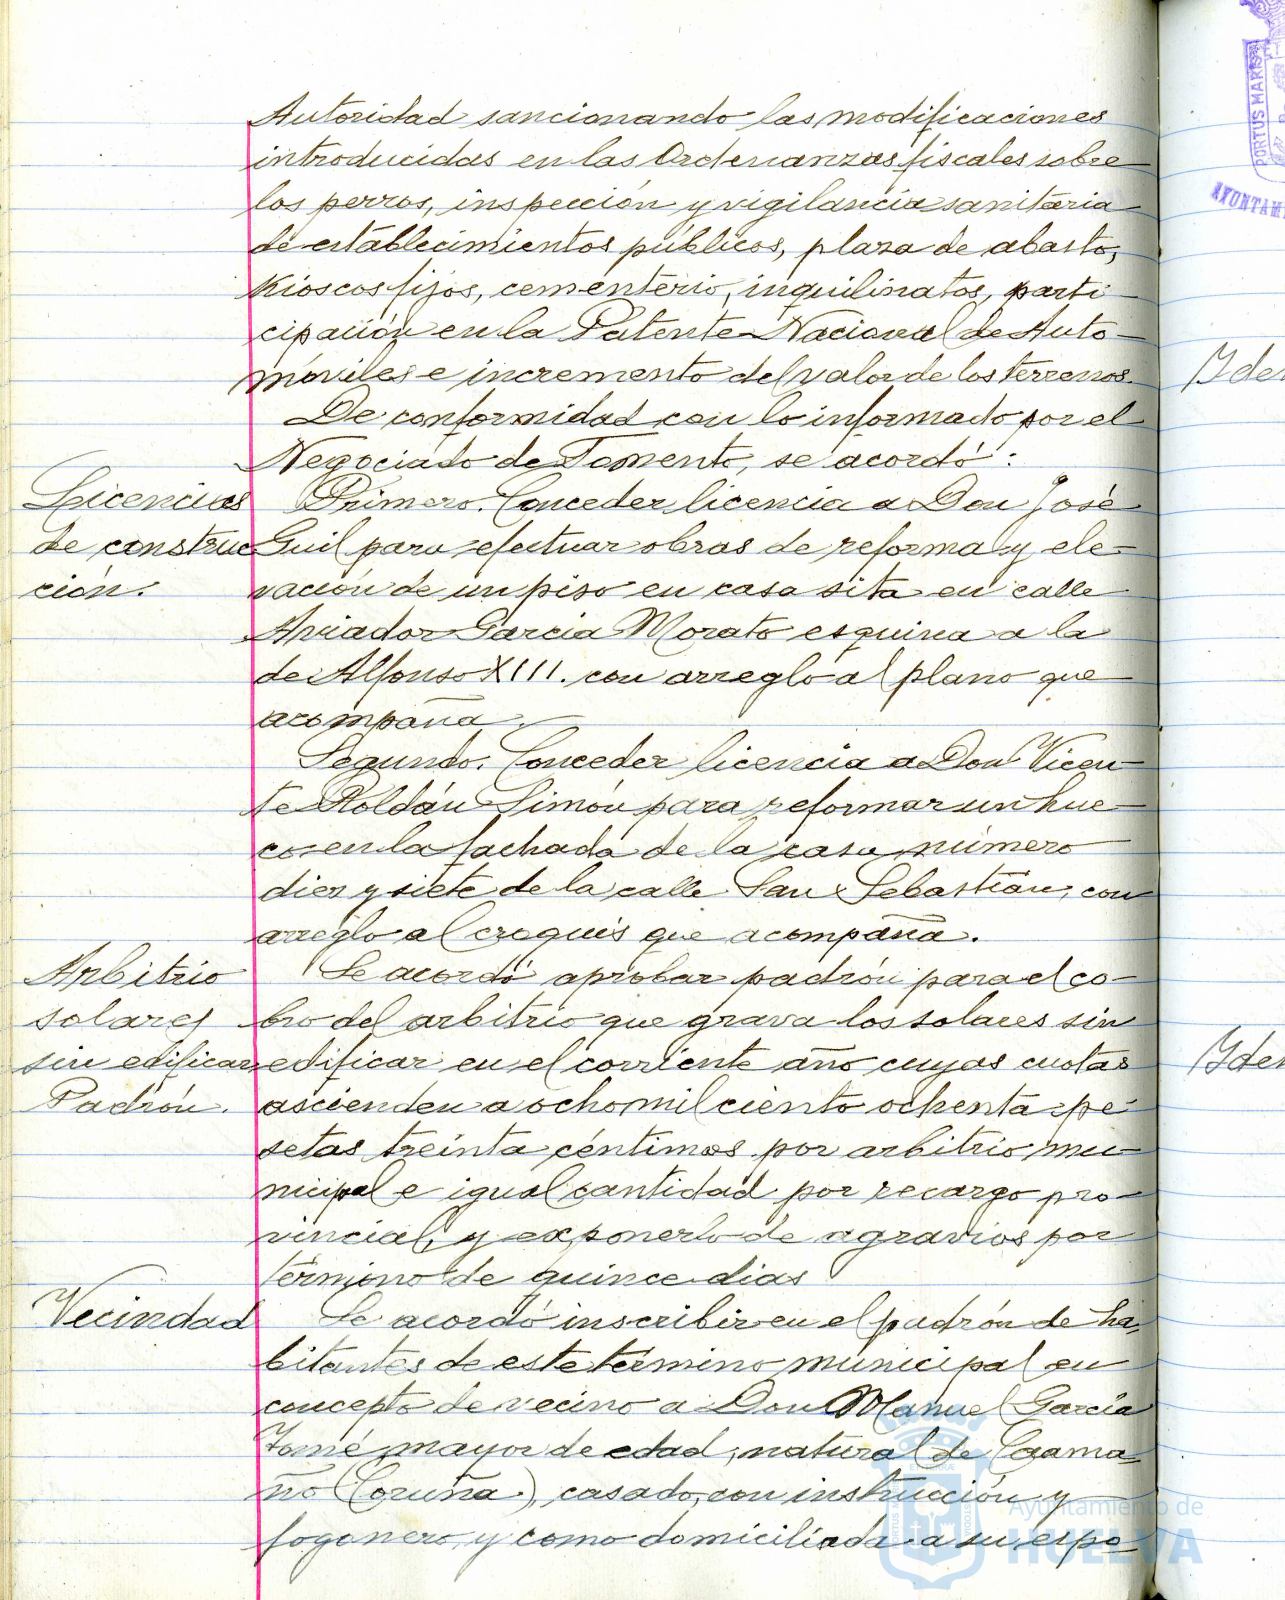 Autoridad sancionando las modificaciones
introducidas en las Ordenanzas fiscales sobre
los perros, inspección y vigilancia sanitaria
de establecimientos públicos, plaza de abasto,
Kioscos fijos, cementerio, inquilinatos, parti-
cipación en la Patente Nacional de Auto-
móviles e incremento del valor de los terrenos.
De conformidad con lo informado por el
Negociado de Fomento, se acordó:
Licencias
de construc
ción.
Primero. Conceder licencia a Don José
Guil para efectuar obras de reforma y ele-
vación de un piso en casa sita en calle
Aviador García Morato esquina a la
de Alfonso XIII. con arreglo al plano que
acompaña.
Segundo. Conceder licencia a Don Vicen-
te Roldán Simón para reformar un hue-
co en la fachada de la casa número
diez y siete de la calle San Sebastián, con
arreglo al croquis que acompaña.
Arbitrio
solares
sin edificar
Padrón.
Se acordó aprobar padrón para el co-
bro del arbitrio que grava los solares sin
edificar en el corriente año cuyas cuotas
ascienden a ocho mil ciento ochenta pe-
setas treinta céntimos por arbitrio mu-
nicipal e igual cantidad por recargo pro-
vincial, y exponerlo de agravios por
término de quince dias
Vecindad
Se acordó inscribir en el padrón de ha-
bitantes de este término municipal en
concepto de vecino a Don Manuel García
Tomé, mayor de edad, natural de Caama-
ño (Coruña), casado, con instrucción y
fogonero, y como domiciliada a su espo-
Ayuntamiento de
HUELVA
PORTUS MARIS
AYUNTAM
Iden
Iden